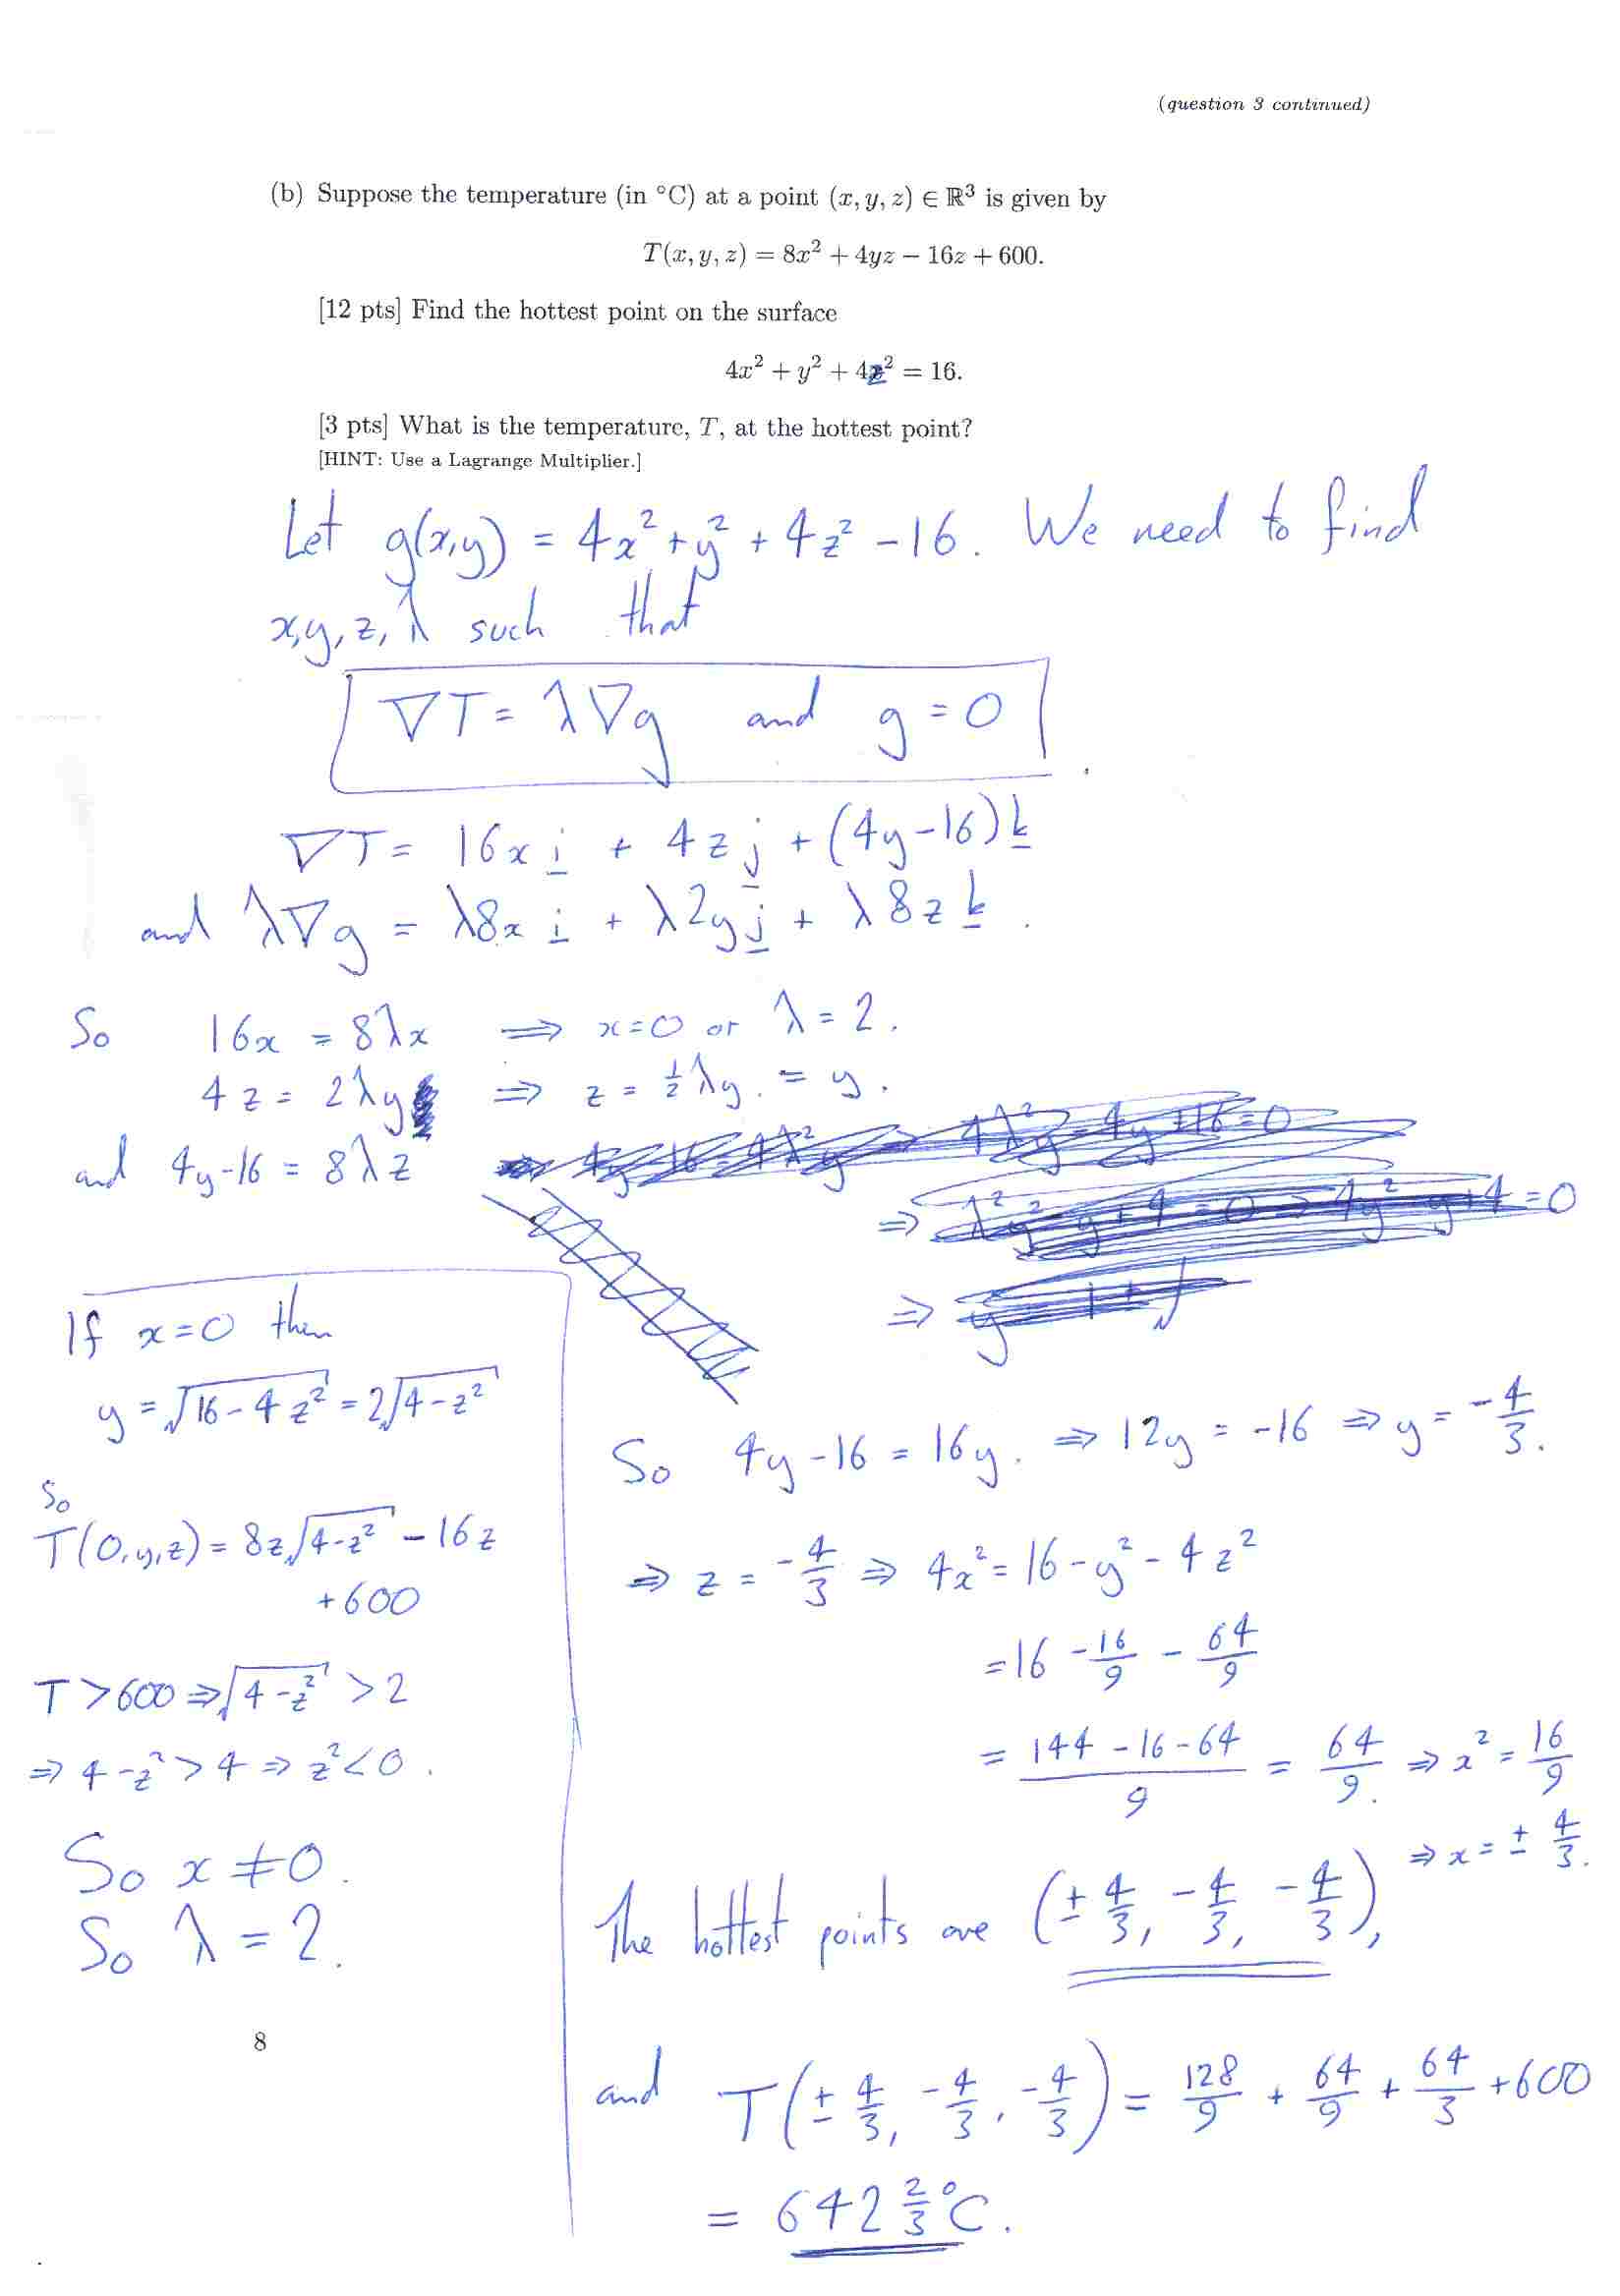 (question 3 continued)
(b) Suppose the temperature (in °C) at a point (x, y, z) ∈ ℝ³ is given by
T(x, y, z) = 8x² + 4yz − 16z + 600.
[12 pts] Find the hottest point on the surface
4x² + y² + 4z² = 16.
[3 pts] What is the temperature, T, at the hottest point?
[HINT: Use a Lagrange Multiplier.]
Let g(x,y) = 4x² + y² + 4z² − 16. We need to find
x, y, z, λ such that
∇T = λ∇g and g = 0
∇T = 16x i + 4z j + (4y−16) k
and λ∇g = λ8x i + λ2y j + λ8z k.
So 16x = 8λx ⇒ x=0 or λ = 2.
4z = 2λy ⇒ z = ½λy. = y.
and 4y−16 = 8λz
If x=0 then
y = √(16−4z²) = 2√(4−z²)
So
T(0,y,z) = 8z√(4−z²) − 16z
+600
T > 600 ⇒ √(4−z²) > 2
⇒ 4−z² > 4 ⇒ z² < 0.
So x ≠ 0.
So λ = 2.
So 4y−16 = 16y. ⇒ 12y = −16 ⇒ y = −4/3.
⇒ z = −4/3 ⇒ 4x² = 16 − y² − 4z²
= 16 − 16/9 − 64/9
= (144 − 16 − 64)/9 = 64/9. ⇒ x² = 16/9
⇒ x = ± 4/3.
The hottest points are (± 4/3, −4/3, −4/3),
and T(± 4/3, −4/3, −4/3) = 128/9 + 64/9 + 64/3 + 600
= 642 2/3 °C.
8